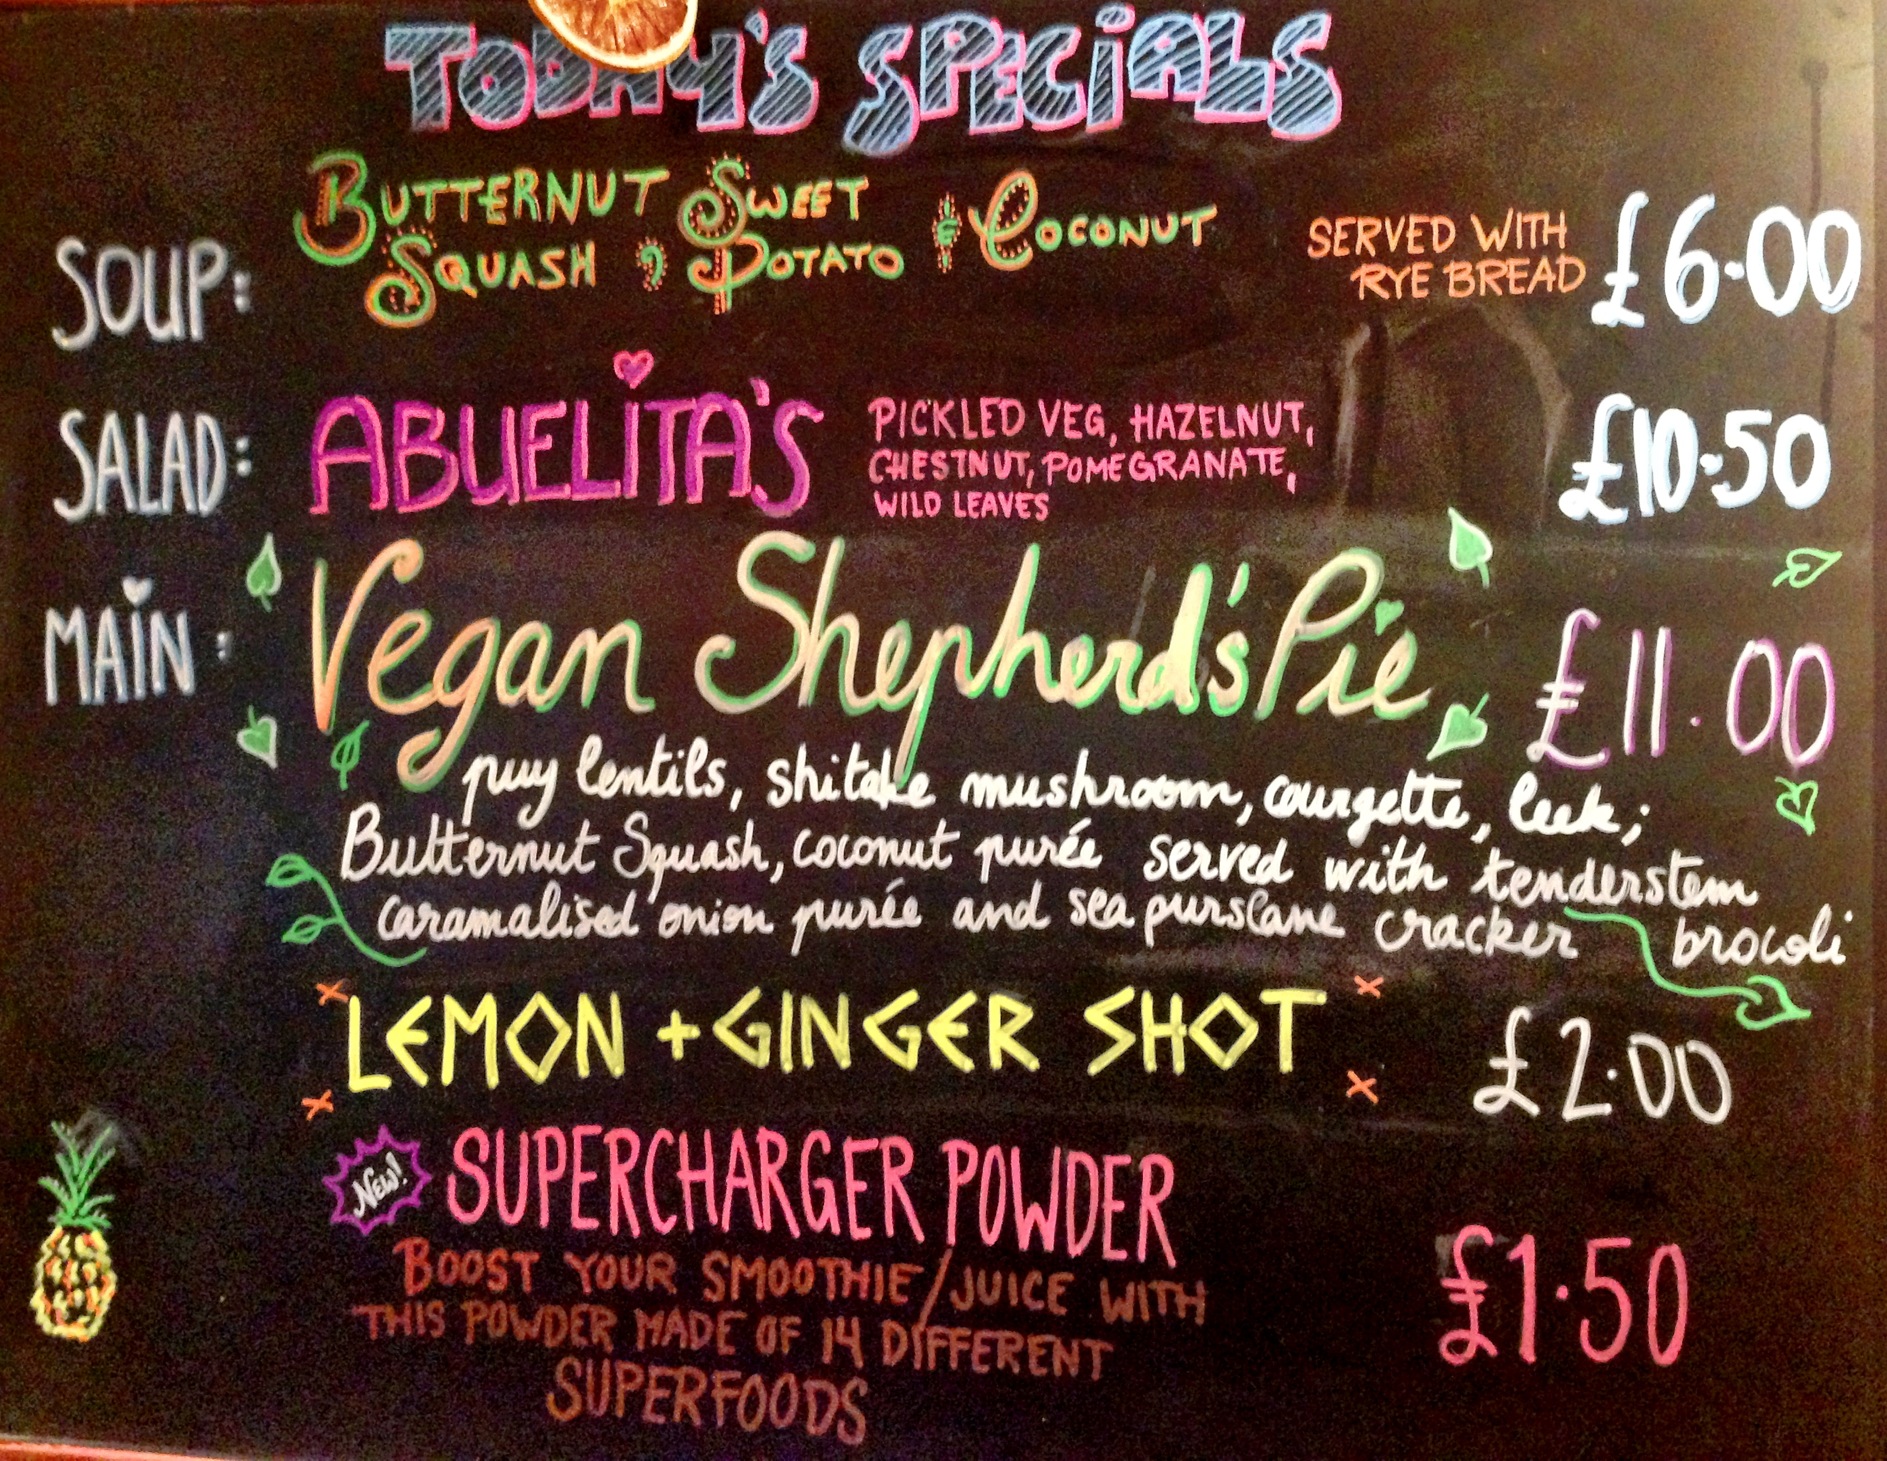 TODAY'S SPECIALS
SOUP: BUTTERNUT SQUASH, SWEET POTATO & COCONUT SERVED WITH RYE BREAD £6.00
SALAD: ABUELITA'S PICKLED VEG, HAZELNUT, £10.50
CHESTNUT, POMEGRANATE,
WILD LEAVES
MAIN: Vegan Shepherd's Pie £11.00
puy lentils, shitake mushroom, courgette, leek;
Butternut Squash, coconut purée served with tenderstem
caramalised onion purée and sea purslane cracker brocoli
LEMON + GINGER SHOT £2.00
NEW! SUPERCHARGER POWDER
BOOST YOUR SMOOTHIE/JUICE WITH £1.50
THIS POWDER MADE OF 14 DIFFERENT
SUPERFOODS